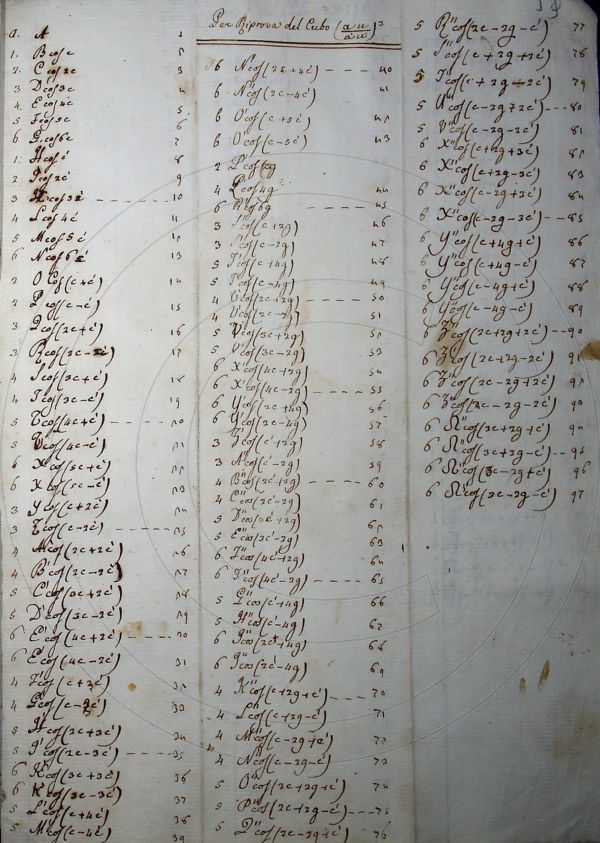 Per Riprova del Cubo (au/a'u')³
0. A 1
1. B cos c 2
2. C cos 2c 3
3 D cos 3c 4
4 E cos 4c 5
5 F cos 5c 6
6 G cos 6c 7
1. H cos c' 8
2. I cos 2c' 9
3 K cos 3c' ---- 10
4 L cos 4c' 11
5 M cos 5c' 12
6 N cos 6c' 13
2 O cos(c+c') 14
2 P cos(c-c') 15
3 Q cos(2c+c') 16
3 R cos(2c-c') 17
4 S cos(3c+c') 18
4 T cos(3c-c') 19
5 cos(4c+c') ---- 20
5 V cos(4c-c') 21
6 X cos(5c+c') 22
6 X cos(5c-c') 23
3 Y cos(c+2c') 24
3 Z cos(c-2c') ---- 25
4 A' cos(2c+2c') 26
4 B' cos(2c-2c') 27
5 C' cos(3c+2c') 28
5 D' cos(3c-2c') 29
6 E' cos(4c+2c') ---- 30
6 E cos(4c-2c') 31
4 F' cos(c+3c') 32
4 G' cos(c-3c') 33
5 H' cos(2c+3c') 34
5 I' cos(2c-3c') ---- 35
6 K' cos(3c+3c') 36
6 K cos(3c-3c') 37
5 L' cos(c+4c') 38
5 M' cos(c-4c') 39
6 N' cos(2c+4c') ---- 40
6 N' cos(2c-4c') 41
6 O' cos(c+5c') 42
6 O' cos(c-5c') 43
2 P' cos 2g
4 Q' cos 4g 44
6 R' cos 6g ---- 45
3 S' cos(c+2g) 46
3 S' cos(c-2g) 47
5 T' cos(c+4g) 48
5 T' cos(c-4g) 49
4 V' cos(2c+2g) ---- 50
4 V' cos(2c-2g) 51
5 V' cos(3c+2g) 52
5 V' cos(3c-2g) 53
6 X' cos(4c+2g) 54
6 X' cos(4c-2g) ---- 55
6 Y' cos(2c+4g) 56
6 Y' cos(2c-4g) 57
3 Z' cos(c'+2g) 58
3 A'' cos(c'-2g) 59
4 B'' cos(2c'+2g) ---- 60
4 C'' cos(2c'-2g) 61
5 D'' cos(3c'+2g) 62
5 E'' cos(3c'-2g) 63
6 F'' cos(4c'+2g) 64
6 F'' cos(4c'-2g) ---- 65
5 G'' cos(c'+4g) 66
5 H'' cos(c'-4g) 67
6 I'' cos(2c'+4g) 68
6 I'' cos(2c'-4g) 69
4 K'' cos(c+2g+c') ---- 70
4 L'' cos(c+2g-c') 71
4 M'' cos(c-2g+c') 72
4 N'' cos(c-2g-c') 73
5 O'' cos(2c+2g+c') 74
5 P'' cos(2c+2g-c') ---- 75
5 Q'' cos(2c-2g+c') 76
5 R'' cos(2c-2g-c') 77
5 S'' cos(c+2g+2c') 78
5 T'' cos(c+2g-2c') 79
5 cos(c-2g+2c') ---- 80
5 V'' cos(c-2g-2c') 81
6 X'' cos(c+2g+3c') 82
6 X'' cos(c+2g-3c') 83
6 X'' cos(c-2g+3c') 84
6 X'' cos(c-2g-3c') ---- 85
6 Y'' cos(c+4g+c') 86
6 Y'' cos(c+4g-c') 87
6 Y'' cos(c-4g+c') 88
6 Y'' cos(c-4g-c') 89
6 Z'' cos(2c+2g+2c') ---- 90
6 Z'' cos(2c+2g-2c') 91
6 Z'' cos(2c-2g+2c')
6 Z'' cos(2c-2g-2c')
6 Ω'' cos(3c+2g+c') 94
6 Ω'' cos(3c+2g-c') ---- 95
6 Ω'' cos(3c-2g+c') 96
6 Ω'' cos(3c-2g-c') 97